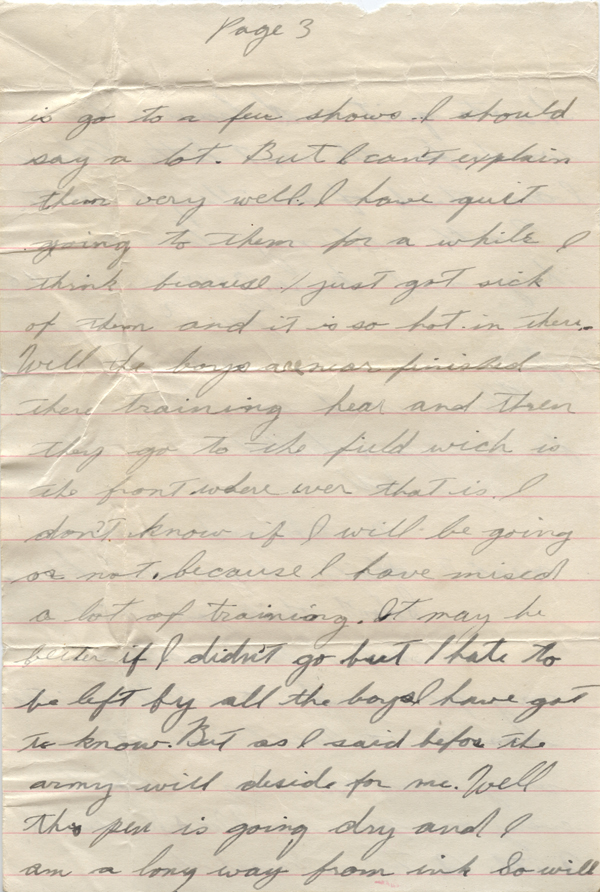 Page 3
is go to a few shows. I should
say a lot. But I can't explain
them very well. I have quit
going to them for a while I
think because I just got sick
of them and it is so hot in there.
Well the boys are near finished
there training hear and then
they go to the field wich is
the front where ever that is. I
don't know if I will be going
or not. because I have mised
a lot of training. It may be
better if I didn't go but I hate to
be left by all the boys I have got
to know. But as I said befor the
army will deside for me. Well
this pen is going dry and I
am a long way from ink So will